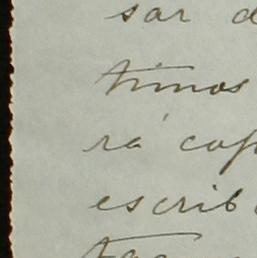 sar d
timos
rá cop
escrib